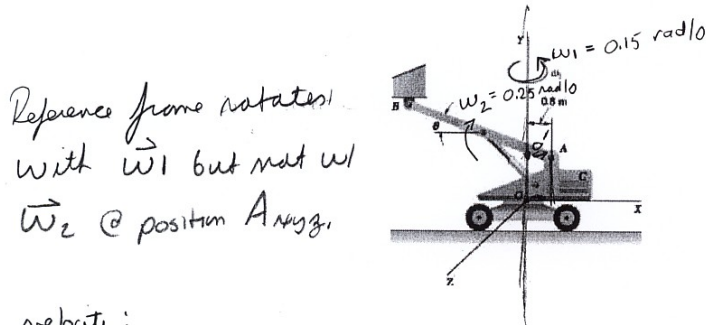 Reference frame rotates
with ω1 but not w/
ω2 @ position Axyz.
Y
ω1 = 0.15 rad/s
ω2 = 0.25 rad/s
0.8 m
B
θ
A
C
O
X
Z
velocity: